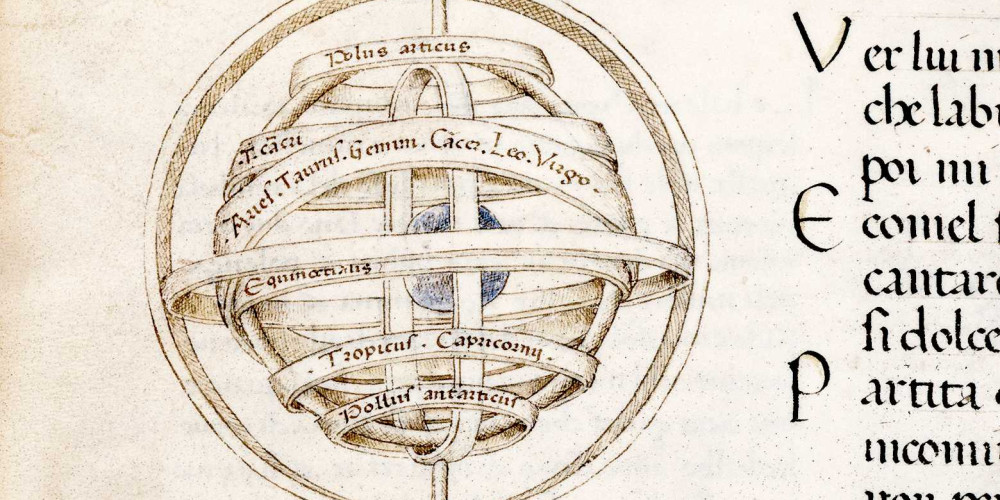 Polus articus
T. cācri
Aries. Taurus. Gemini. Cācer. Leo. Virgo.
Equinoctialis
Tropicus. Capricornij.
Pollus antarticus
Ver lui
che labi
poi mi
E comel
cantare
si dolce
Partita